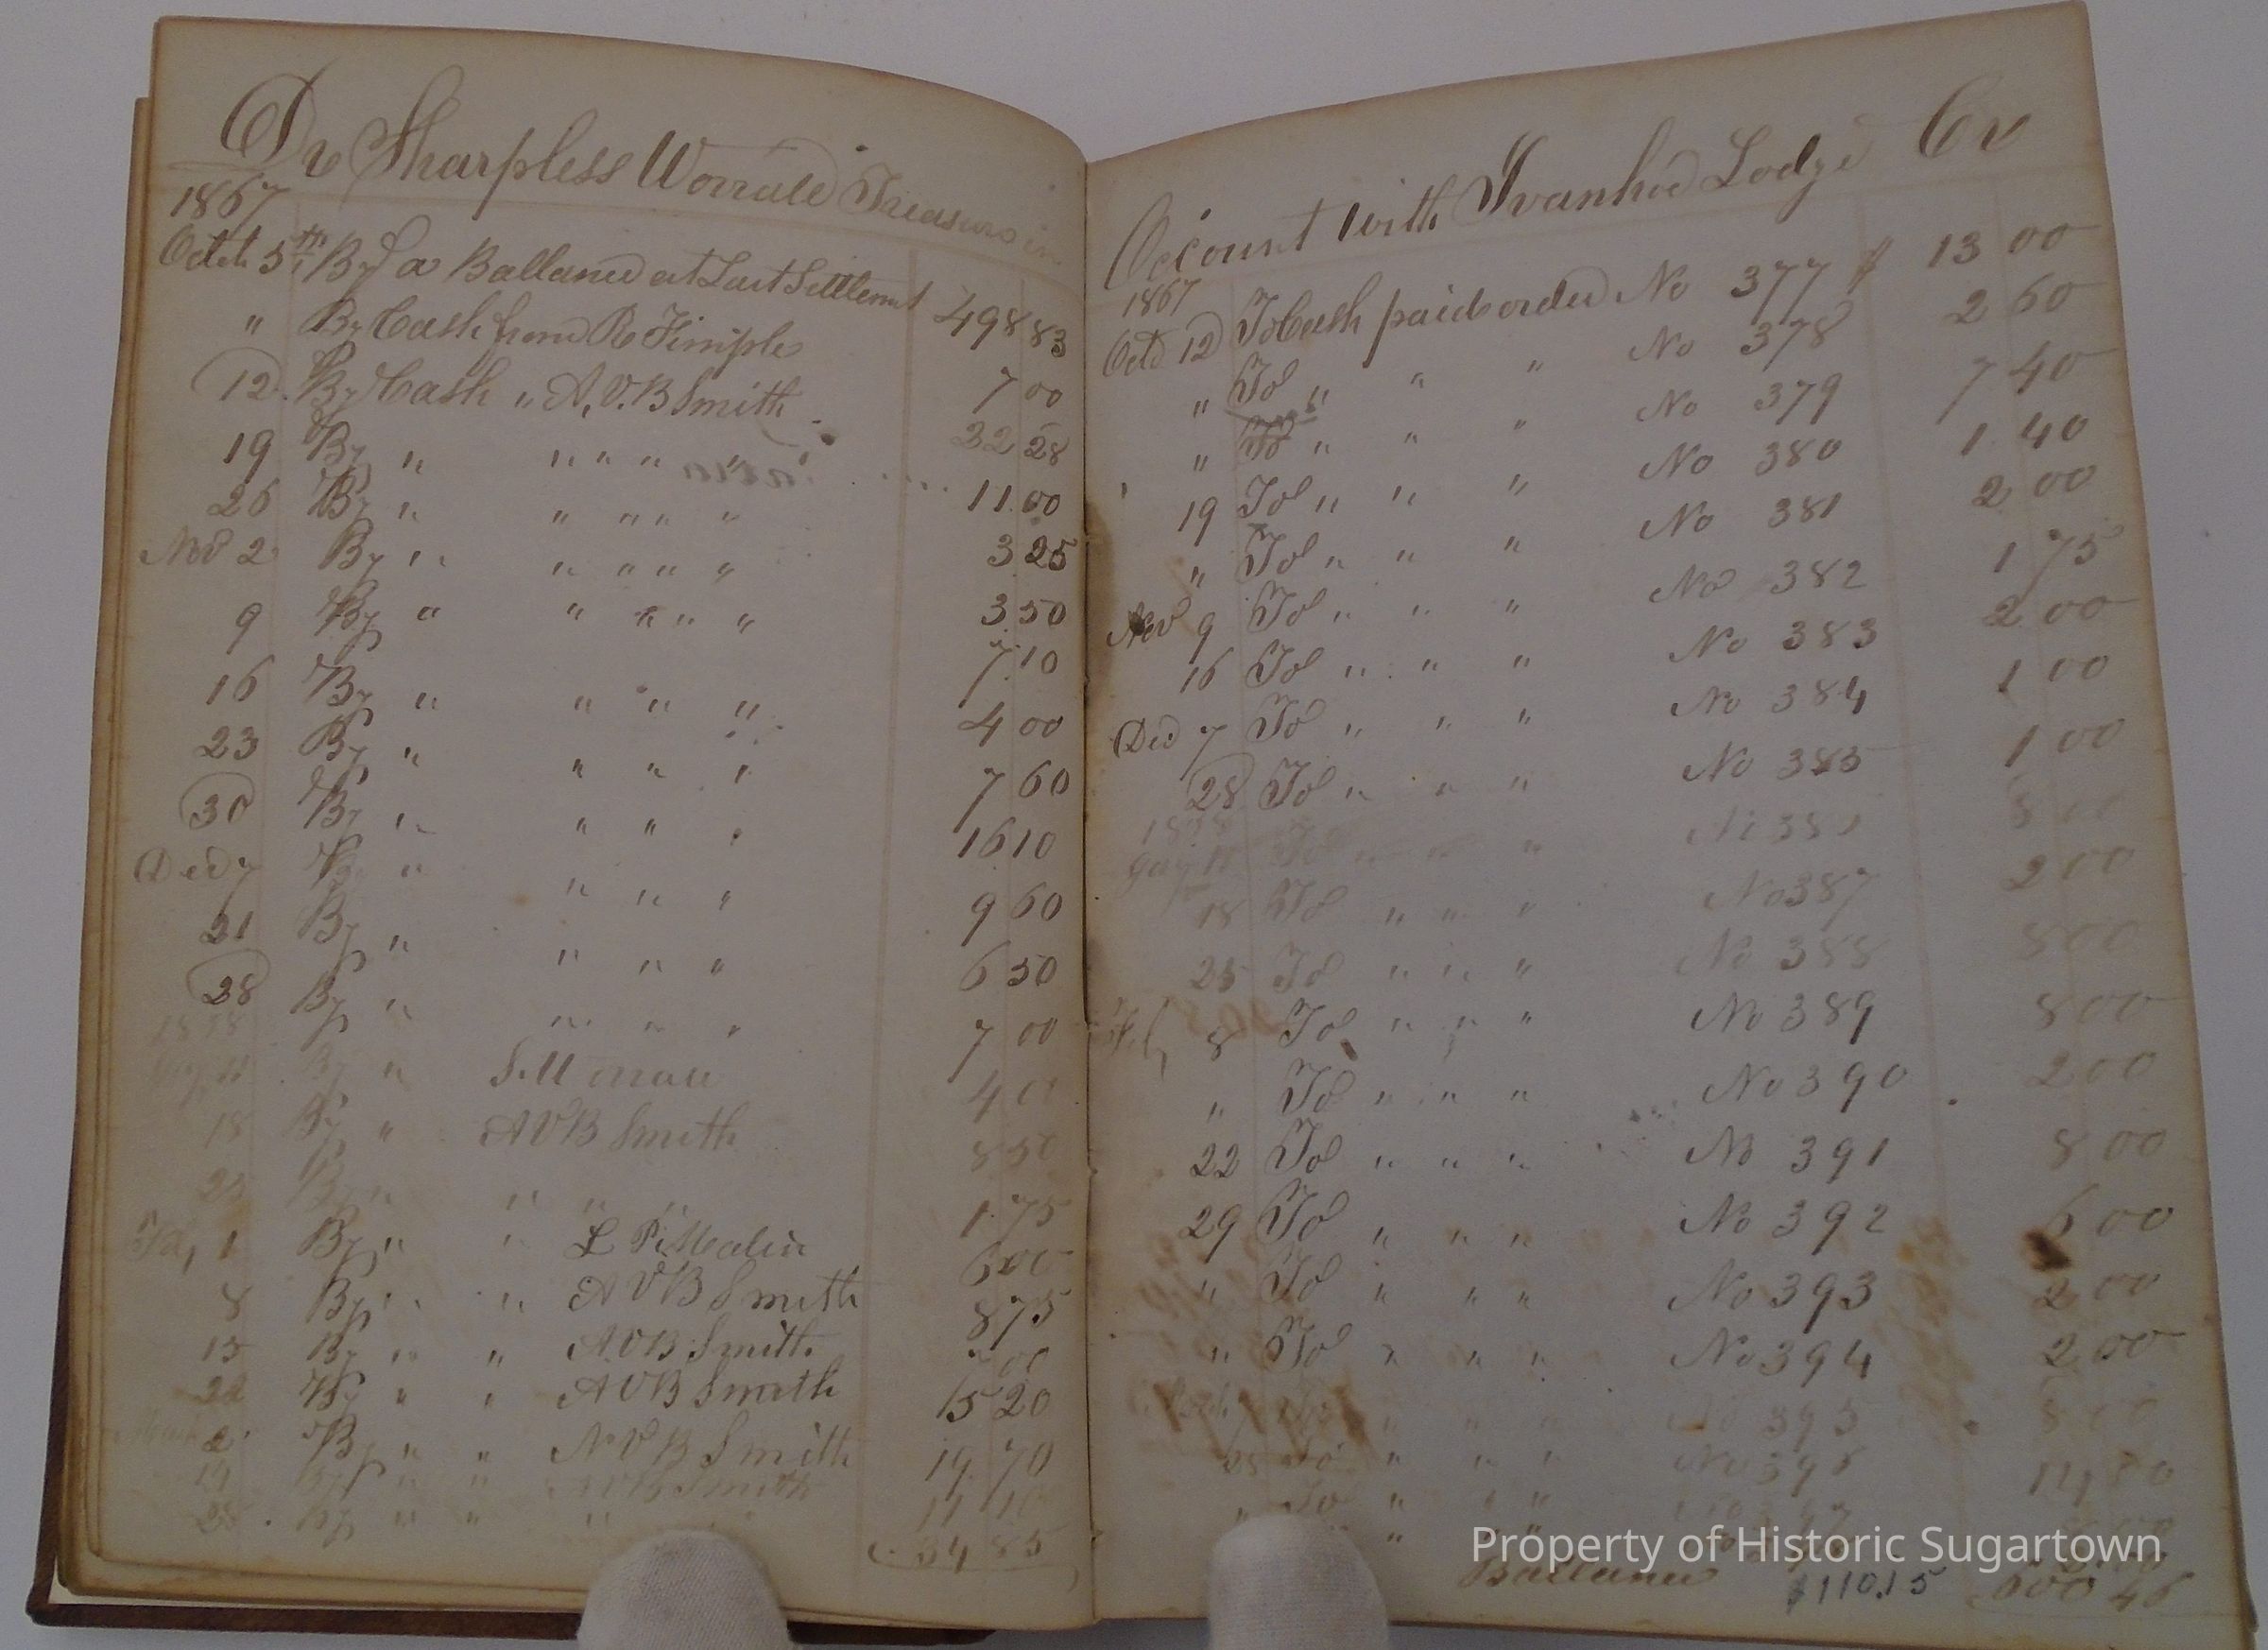 Dr Sharpless Worrall Treasurer in
1867
Octb 5th By a Ballance at Last Settlemt 498 83
" By Cash from R Fimple 7 00
12 By Cash " A. V. B Smith 32 28
19 By " " " " " 11 00
26 By " " " " " 3 25
Nov 2 By " " " " " 3 50
9 By " " " " " 7 10
16 By " " " " 4 00
23 By " " " " 7 60
30 By " " " " 16 10
Dec 7 By " " " " 9 60
21 By " " " " 6 50
28 By " " " " 7 00
1868
11 By " S. Worrall 4 00
18 By " A V B Smith 8 50
25 By " " " " 1 75
Feb, 1 By " " L P. Malin 6 00
8 By " " A V B Smith 8 75
15 By " " A V B Smith 00
22 By " " A V B Smith 15 20
March 2 By " " A V B Smith 19 70
14 By " " A V B Smith 11 10
28 By " " " 34 85
Account with Ivanhoe Lodge Cr
1867
Octo 12 To Cash paid order No 377 $ 13 00
" To " " " No 378 2 60
" To " " " No 379 7 40
19 To " " " No 380 1 40
" To " " " No 381 2 00
Nov 9 To " " " No 382 1 75
16 To " " " No 383 2 00
Dec 7 To " " " No 384 1 00
28 To " " " No 385 1 00
1868
11 To " " " No 38 8 00
18 To " " " No 387 2 00
25 To " " " No 388 8 00
Feb, 8 To " " " No 389 8 00
" To " " " No 390 2 00
22 To " " " No 391 8 00
29 To " " " No 392 6 00
" To " " " No 393 2 00
" To " " " No 394 2 00
" " " No 395 8 00
25 To " " " No 396
" To " " "
"
Ballance $110.15 600 46
Property of Historic Sugartown